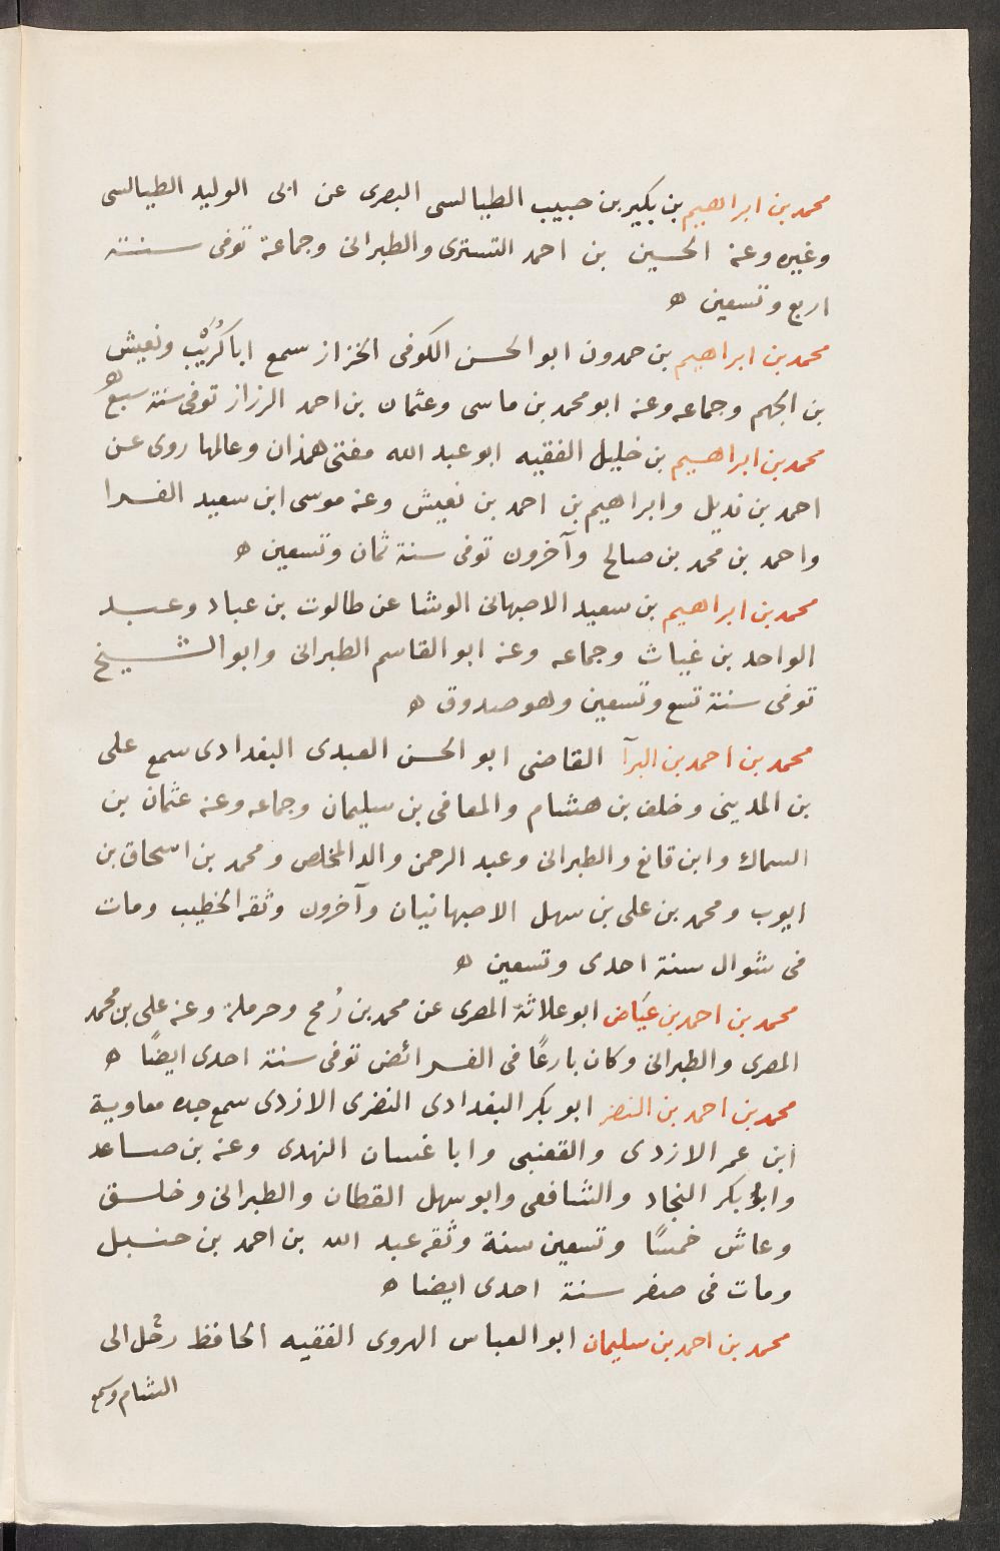 محمد بن ابراهيم بن بكير بن حبيب الطيالسى البصرى عن ابى الوليد الطيالسى
وغيره وعنه الحسين بن احمد التسترى والطبرانى وجماعة توفى سنتة
اربع وتسعين ه
محمد بن ابراهيم بن حمدون ابو الحسن الكوفى الخزاز سمع ابا كُرَيْب ونعيش
بن الجهم وجماعه وعنه ابو محمد بن ماسى وعثمان بن احمد الرزاز توفى سنة سبع ه
محمد بن ابراهيم بن خليل الفقيه ابو عبد الله مفتى همذان وعالمها روى عن
احمد بن نديل وابراهيم بن احمد بن نعيش وعنه موسى ابن سعيد الفرا
واحمد بن محمد بن صالح وآخرون توفى سنة ثمان وتسعين ه
محمد بن ابراهيم بن سعيد الاصبهانى الوشا عن طالوت بن عباد وعبد
الواحد بن غياث وجماعه وعنه ابو القاسم الطبرانى وابو الشيخ
توفى سنة تسع وتسعين وهو صدوق ه
محمد بن احمد بن البرآ القاضى ابو الحسن العبدى البغدادى سمع على
بن المدينى وخلف بن هشام والمعافى بن سليمان وجماعه وعنه عثمان بن
السماك وابن قانع والطبرانى وعبد الرحمن والد المخلص ومحمد بن اسحاق بن
ايوب ومحمد بن على بن سهل الاصبهانيان وآخرون وثقه الخطيب ومات
فى شوال سنة احدى وتسعين ه
محمد بن احمد بن عيَاض ابو علاثة المصرى عن محمد بن رُمح وحرملة وعنه على بن محمد
المصرى والطبرانى وكان بارعًا فى الفرائض توفى سنة احدى ايضًا ه
محمد بن احمد بن النضر ابو بكر البغدادى النضرى الازدى سمع جده معاوية
ابن عمر الازدى والقعنبى وابا غسان النهدى وعنه بن صاعد
وابو بكر النجاد والشافعى وابو سهل القطان والطبرانى وخلق
وعاش خمسًا وتسعين سنة وثقه عبد الله بن احمد بن حنبل
ومات فى صفر سنة احدى ايضا ه
محمد بن احمد بن سليمان ابو العباس الهروى الفقيه الحافظ رحل الى
الشام وسمع